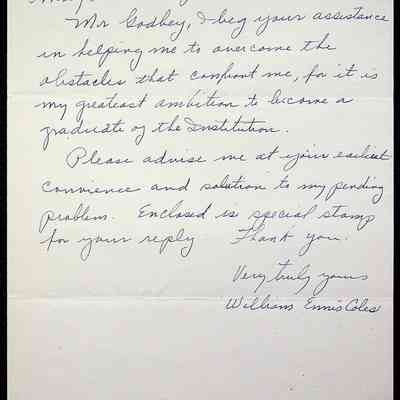 Mr Godbey, I beg your assistance
in helping me to overcome the
obstacles that confront me, for it is
my greatest ambition to become a
graduate of the Institution.
Please advise me at your earliest
convience and solution to my pending
problem. Enclosed is special stamp
for your reply Thank you.
Very truly yours
William Ennis Coles